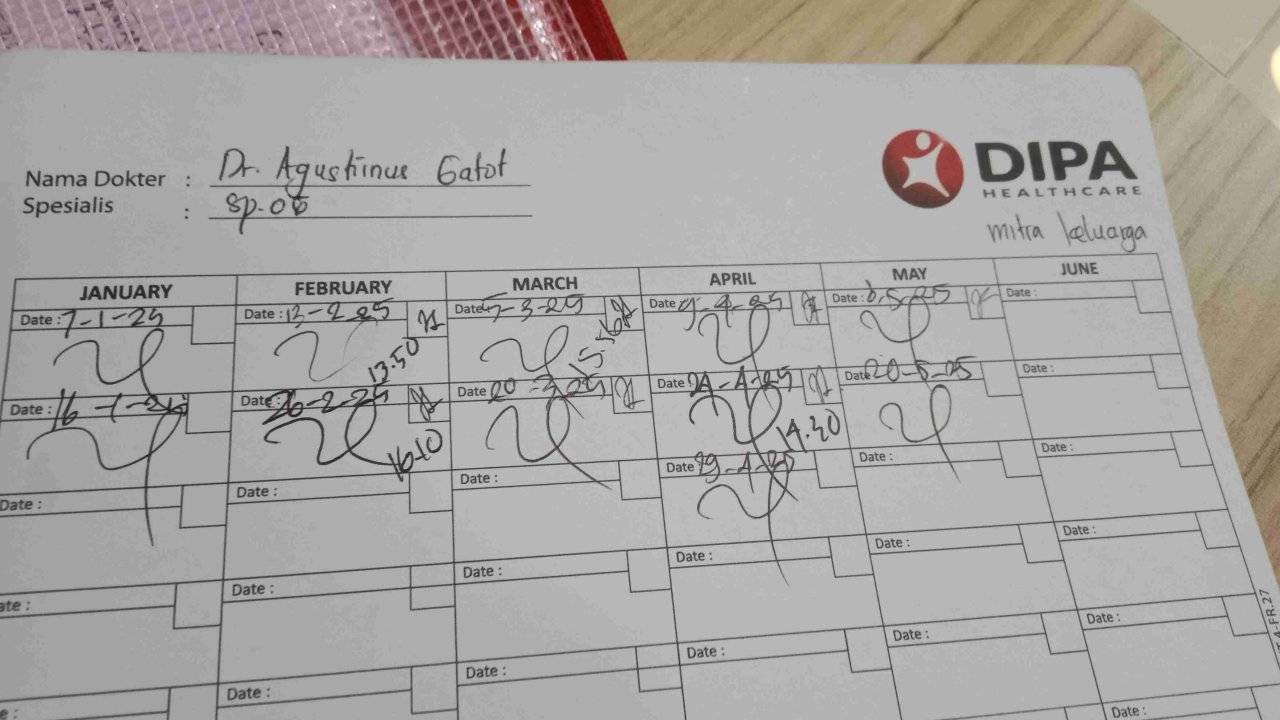 Nama Dokter : Dr. Agustinus Gatot
Spesialis : Sp.OG
DIPA
HEALTHCARE
mitra keluarga
JANUARY FEBRUARY MARCH APRIL MAY JUNE
Date : 7-1-25 Date : 13-2-25 Date : 5-3-25 Date : 9-4-25 Date : 8-5-25 Date :
13.50 15.56
Date : 16-1-25 Date : 26-2-25 Date : 20-3-25 Date : 24-4-25 Date : 20-5-25 Date :
16.10 14.20
Date : Date : Date : Date : 29-4-25 Date : Date :
Date : Date : Date : Date : Date :
Date : Date : Date : Date : Date :
Date :